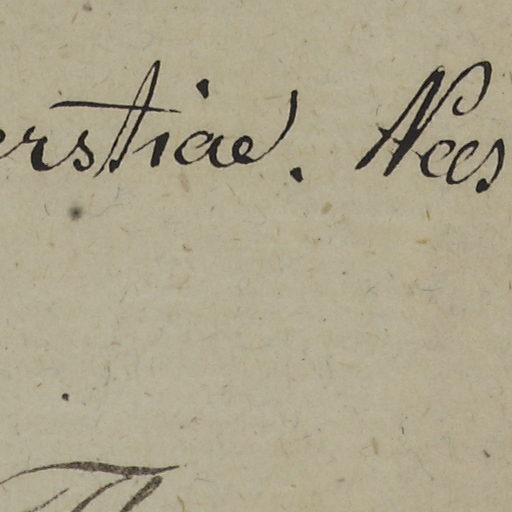 erstiae. Nees